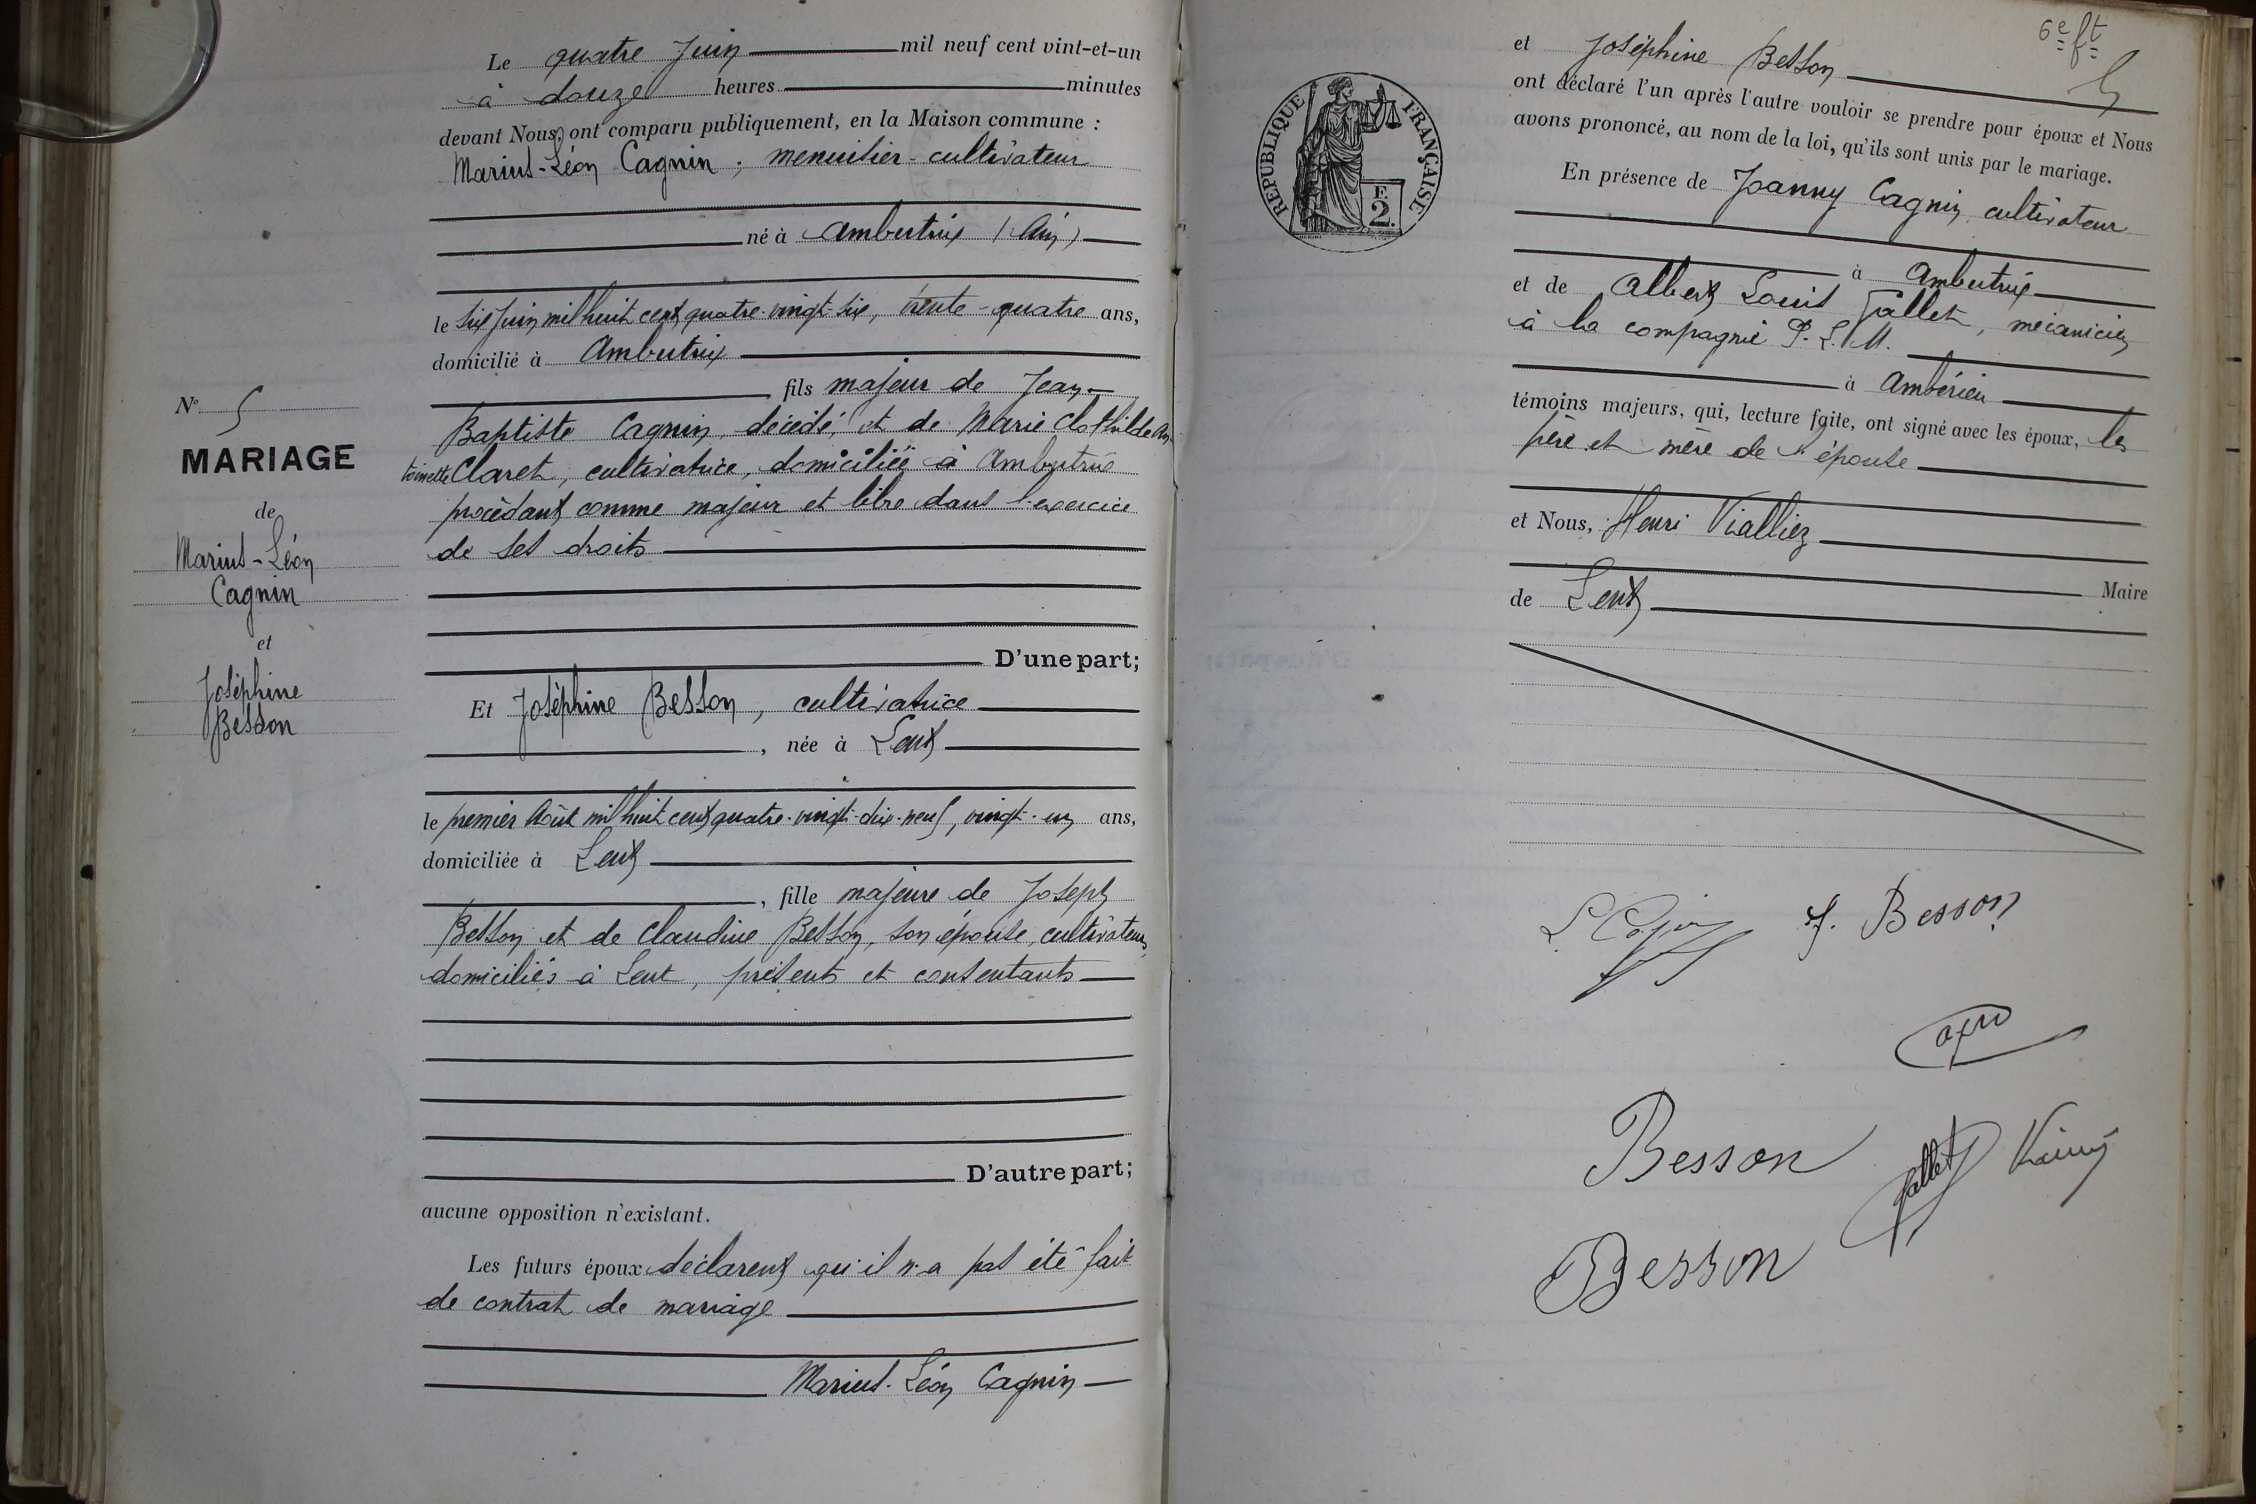 Le quatre Juin mil neuf cent vint-et-un
à douze heures minutes
devant Nous, ont comparu publiquement, en la Maison commune :
Marius-Léon Cagnin, menuisier-cultivateur
né à Ambutrix (Ain)
le six Juin mil huit cent quatre-vingt-six, trente-quatre ans,
domicilié à Ambutrix
fils majeur de Jean-
Baptiste Cagnin, décédé, et de Marie Clothilde An
toinette Claret, cultivatrice, domiciliée à Ambutrix
procédant comme majeur et libre dans l'exercice
de ses droits
D'une part;
Et Joséphine Besson, cultivatrice
, née à Lent
le premier Août mil huit cent quatre-vingt-dix-neuf, vingt-un ans,
domiciliée à Lent
, fille majeure de Joseph
Besson et de Claudine Besson, son épouse, cultivateurs,
domiciliés à Lent, présents et consentants
D'autre part;
aucune opposition n'existant.
Les futurs époux déclarent qu'il n'a pas été fait
de contrat de mariage
Marius-Léon Cagnin
N° 5
MARIAGE
de
Marius-Léon
Cagnin
et
Joséphine
Besson
6e ft
5
REPUBLIQUE FRANÇAISE
F.
2.
et Joséphine Besson
ont déclaré l'un après l'autre vouloir se prendre pour époux et Nous
avons prononcé, au nom de la loi, qu'ils sont unis par le mariage.
En présence de Joanny Cagnin, cultivateur
à Ambutrix
et de Albert Louis Gallet, mécanicien
à la compagnie P.L.M.
à Ambérieu
témoins majeurs, qui, lecture faite, ont signé avec les époux, les
père et mère de l'épouse
et Nous, Henri Vialliez
Maire
de Lent
L. Cagnin
J. Besson
Besson
Gallet
Besson